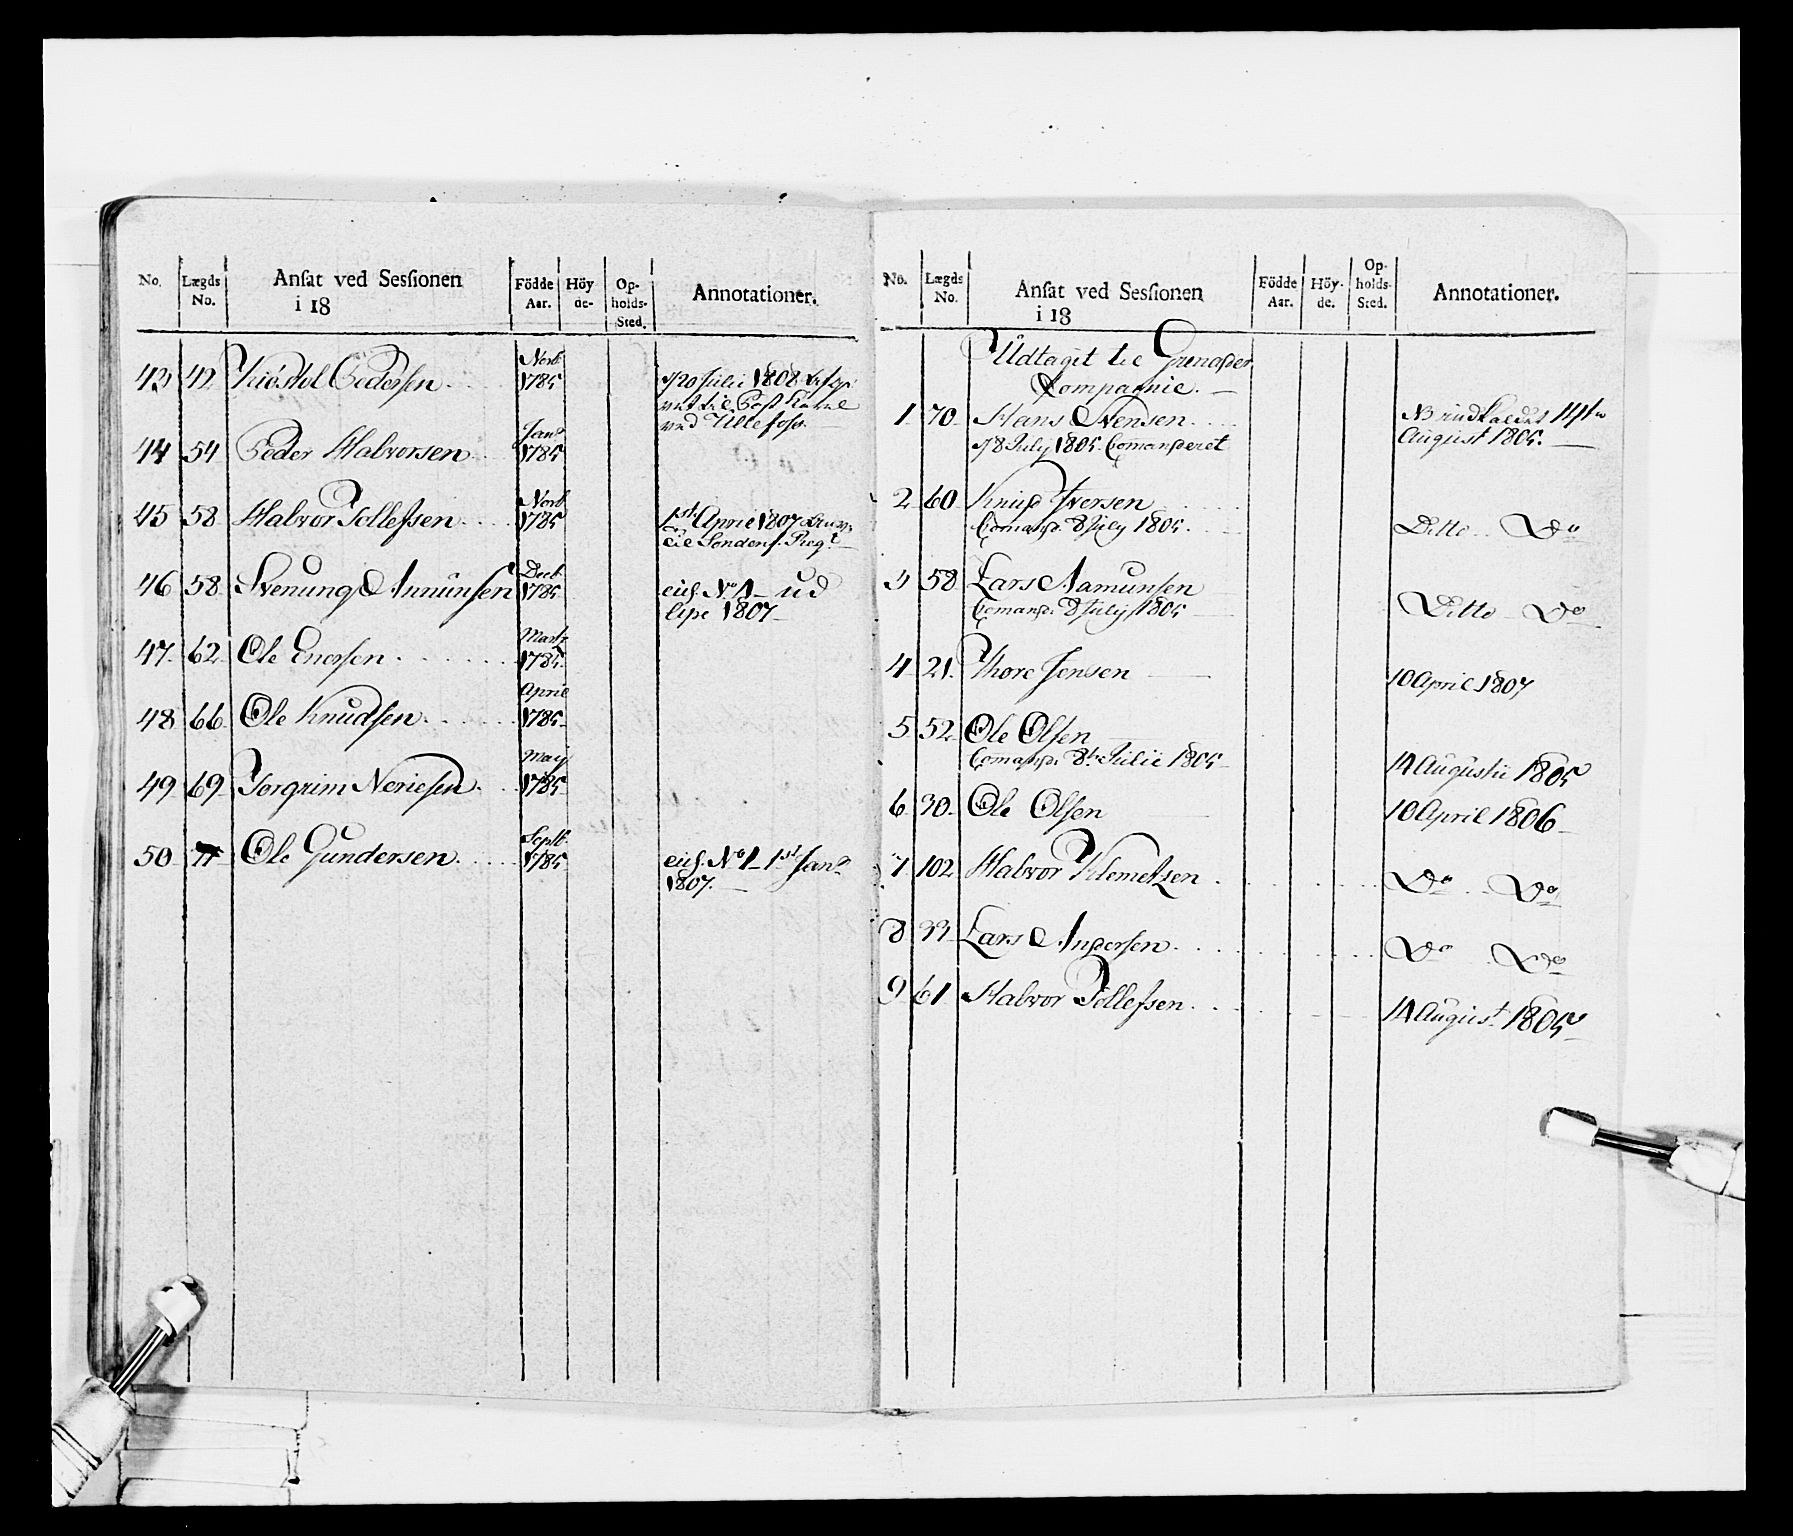 No. Lægds No. Ansat ved Sessionen i 18 Födde Aar. Höyde- Opholds-Sted. Annotationer.
43 42 Kiöstol Pedersen Novb. 1785 d/20 Julii 1808
vet til Post Karl
ved Ullefoss
44 54 Peder Halvorsen Janr 1785
45 58 Halvor Tollefsen Novb. 1785 1st April 1807
til Söndenf. Regt
46 58 Svenung Amunsen Decb. 1785 eich. No 1
1807
47 62 Ole Enersen Marts 1785
48 66 Ole Knudsen April 1785
49 69 Torgrim Neriesen May 1785
50 77 Ole Gundersen Septb. 1785 eich. No 1 1st Janr
1807.
No. Lægds No. Ansat ved Sessionen i 18 Födde Aar. Höy-de. Opholds-Sted. Annotationer.
Udtaget til Grenader
Compagnie.
1 70 Hans Svensen NB indkaldet 14de
d/8 July 1805. Comanderet August 1805.
2 60 Knud Iversen
Comand. 8 July 1805. Ditto Do
3 58 Lars Aamunsen
Comand. 8 July 1805 Ditto Do
4 21 Thore Jensen 10 April 1807
5 52 Ole Olsen
Comand. 8de Julii 1805 14 Augustii 1805
6 30 Ole Olsen 10 April 1806
7 102 Halvor Klemetsen Do Do
8 33 Lars Andersen Do Do
9 61 Halvor Tollefsen 14 August 1805